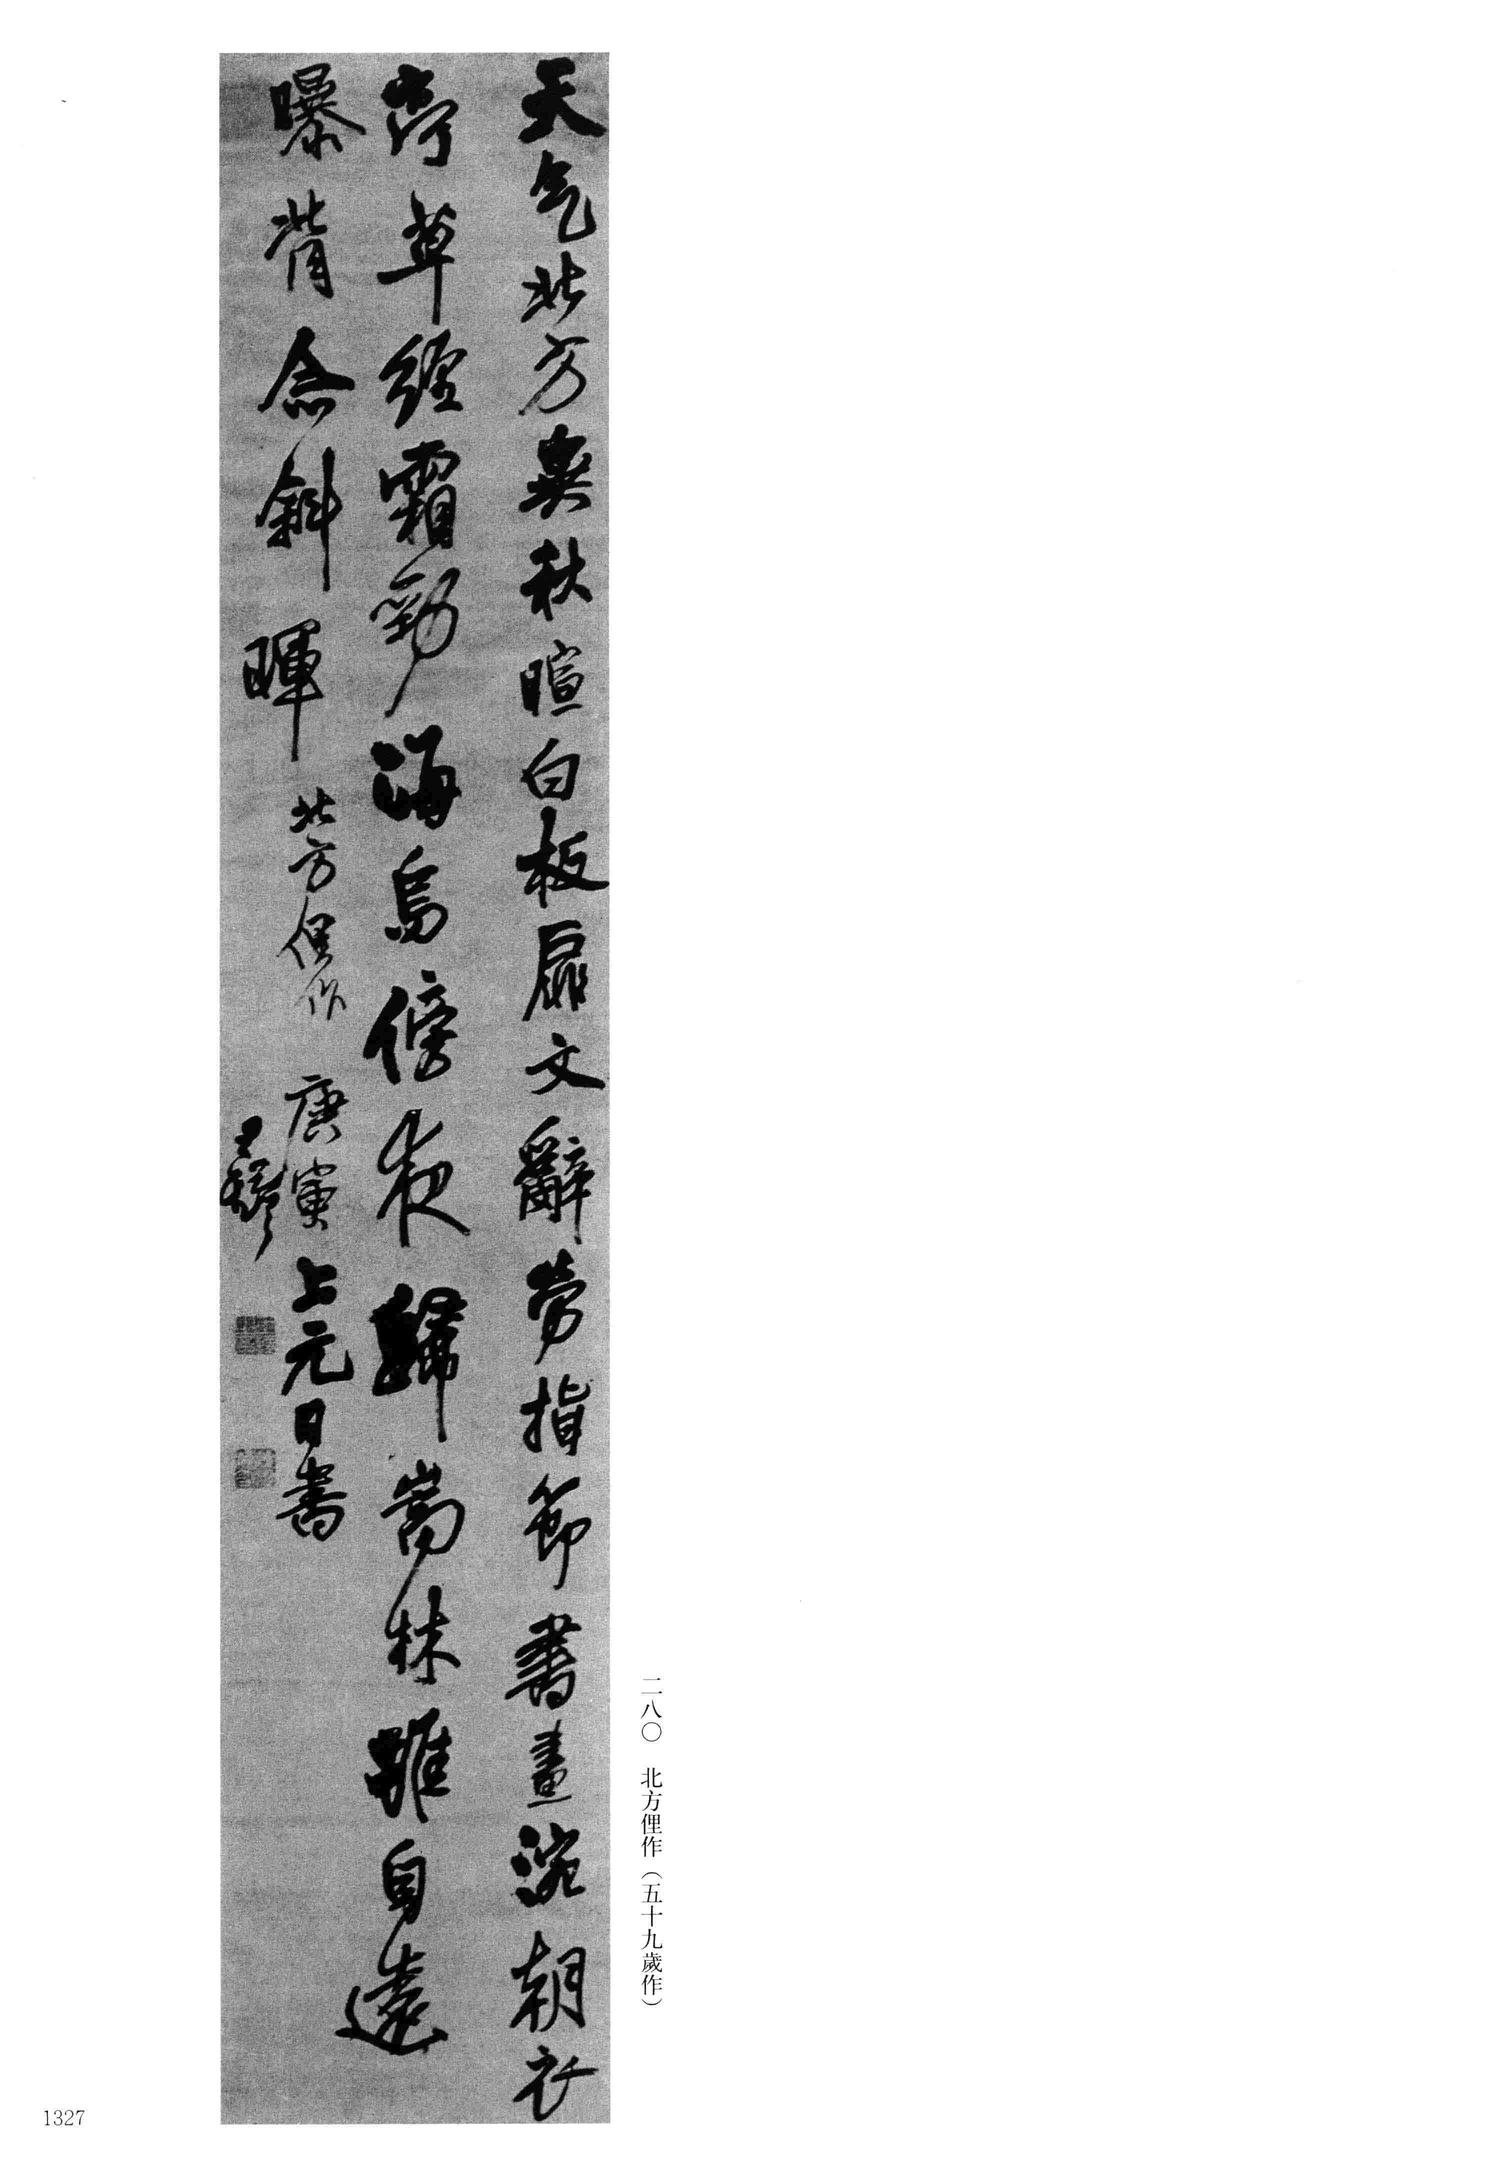 天气北方異秋暄白板扉文辭勞指節書畫涴朝衣
草經霜勁海鳥傍夜歸嵩林雖自遠
曝背念斜暉 北方俚作 庚寅上元日書
王鐸
二八〇 北方俚作（五十九歲作）
1327